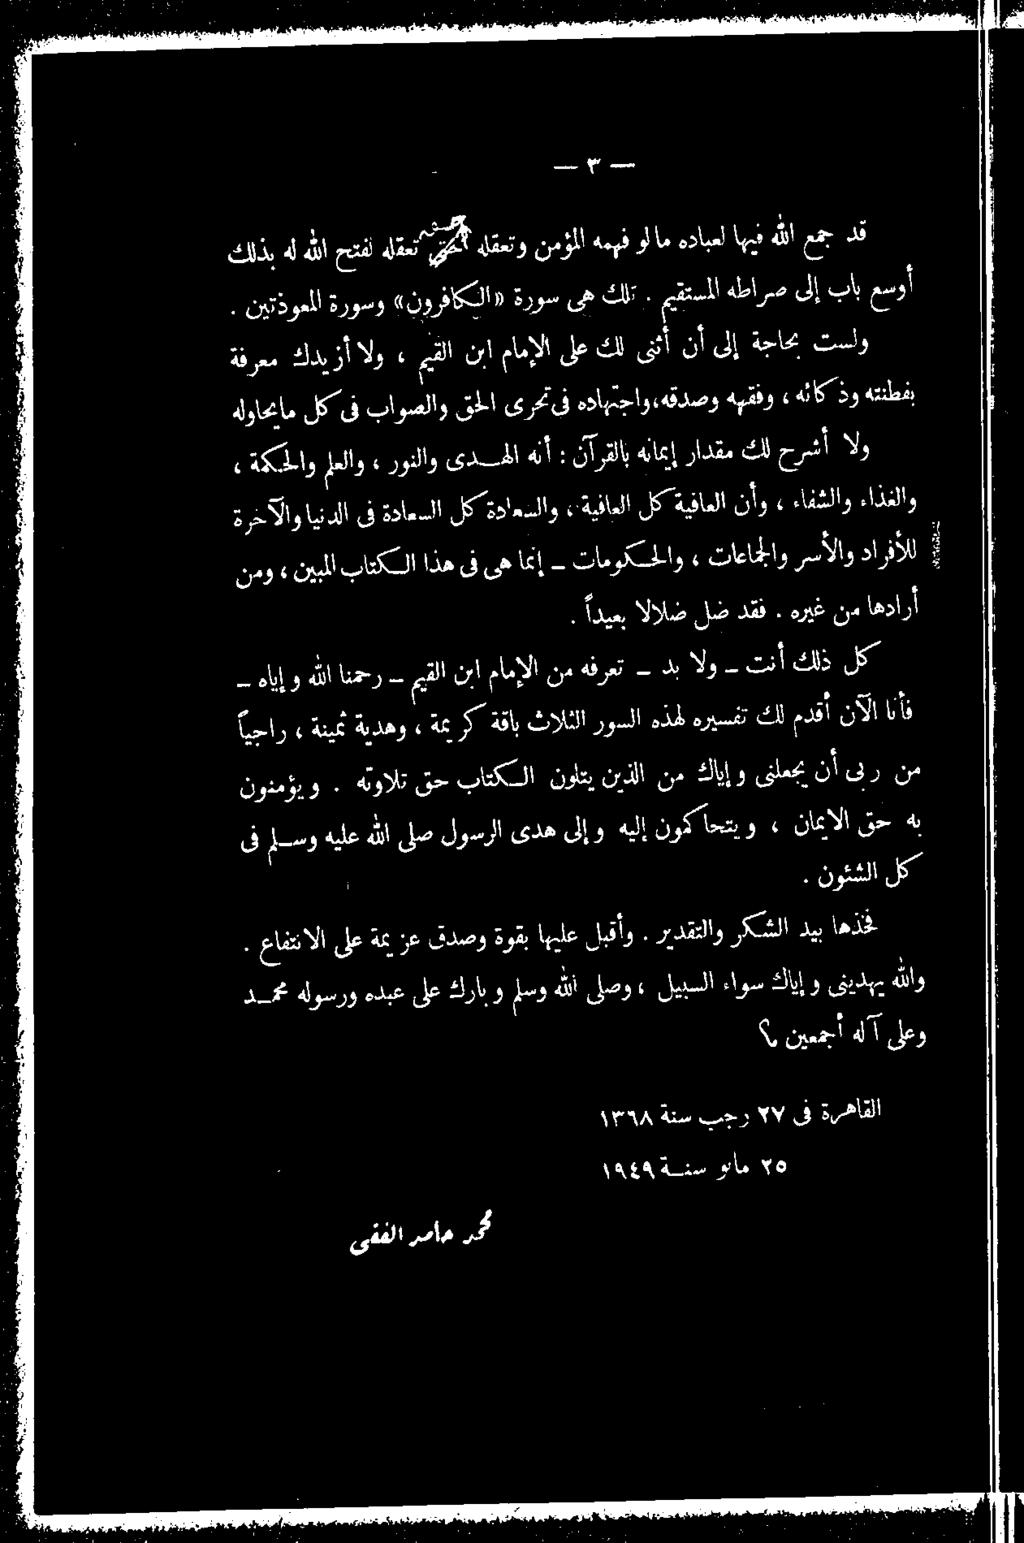 — ٣ —
قد جمع الله فيها لعباده ما لو فهمه المؤمن وتعقله حق تعقله لفتح الله له بذلك
أوسع باب إلى صراطه المستقيم . تلك هى سورة «الكافرون» وسورة المعوذتين .
ولست بحاجة إلى أن أثنى لك على الإمام ابن القيم ، ولا أزيدك معرفة
بفطنته وذكائه ، وفقهه وصدقه، واجتهاده فى تحرى الحق والصواب فى كل مايحاوله
ولا أشرح لك مقدار إيمانه بالقرآن : أنه الهدى والنور ، والعلم والحكمة ،
والغذاء والشفاء ، وأن العافية كل العافية ، والسعادة كل السعادة فى الدنيا والآخرة
للأفراد والأسر والجماعات ، والحكومات – إنما هى فى هذا الكتاب المبين ، ومن
أرادها من غيره . فقد ضل ضلالا بعيداً .
كل ذلك أنت – ولا بد – تعرفه من الإمام ابن القيم – رحمنا الله وإياه –
فأنا الآن أقدم لك تفسيره لهذه السور الثلاث باقة كريمة ، وهدية ثمينة ، راجياً
من ربى أن يجعلنى وإياك من الذين يتلون الكتاب حق تلاوته . ويؤمنون
به حق الايمان ، ويتحاكمون إليه وإلى هدى الرسول صلى الله عليه وسلم فى
كل الشئون .
فخذها بيد الشكر والتقدير . وأقبل عليها بقوة وصدق عزيمة على الانتفاع .
والله يهدينى وإياك سواء السبيل ، وصلى الله وسلم وبارك على عبده ورسوله محمد
وعلى آله أجمعين
القاهرة فى ٢٧ رجب سنة ١٣٦٨
٢٥ مايو سنة ١٩٤٩
محمد حامد الفقى